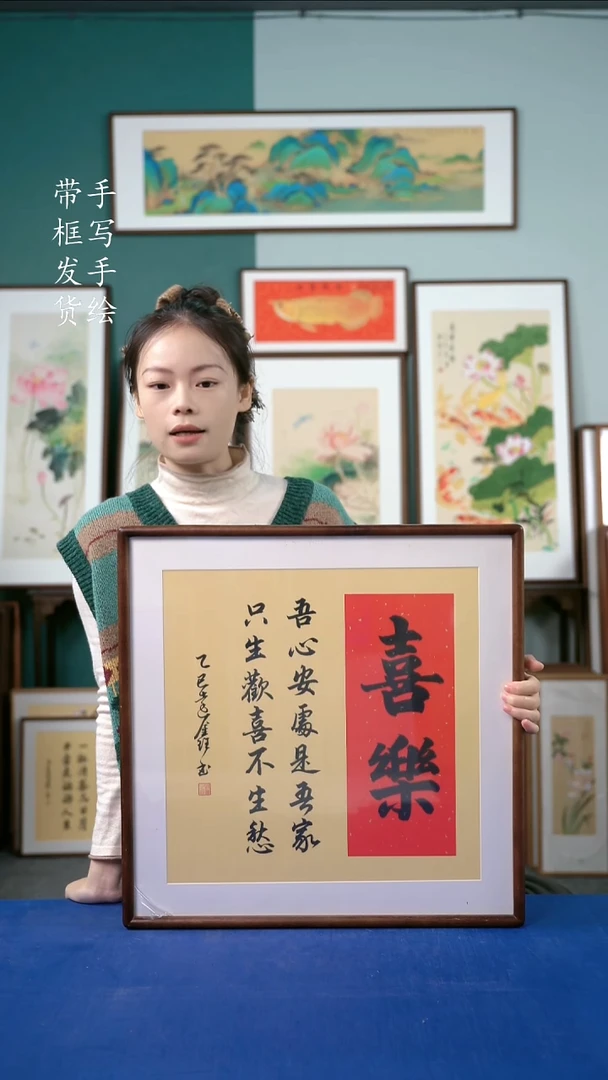 手写手绘
带框发货
喜樂
吾心安處是吾家
只生歡喜不生愁
乙巳